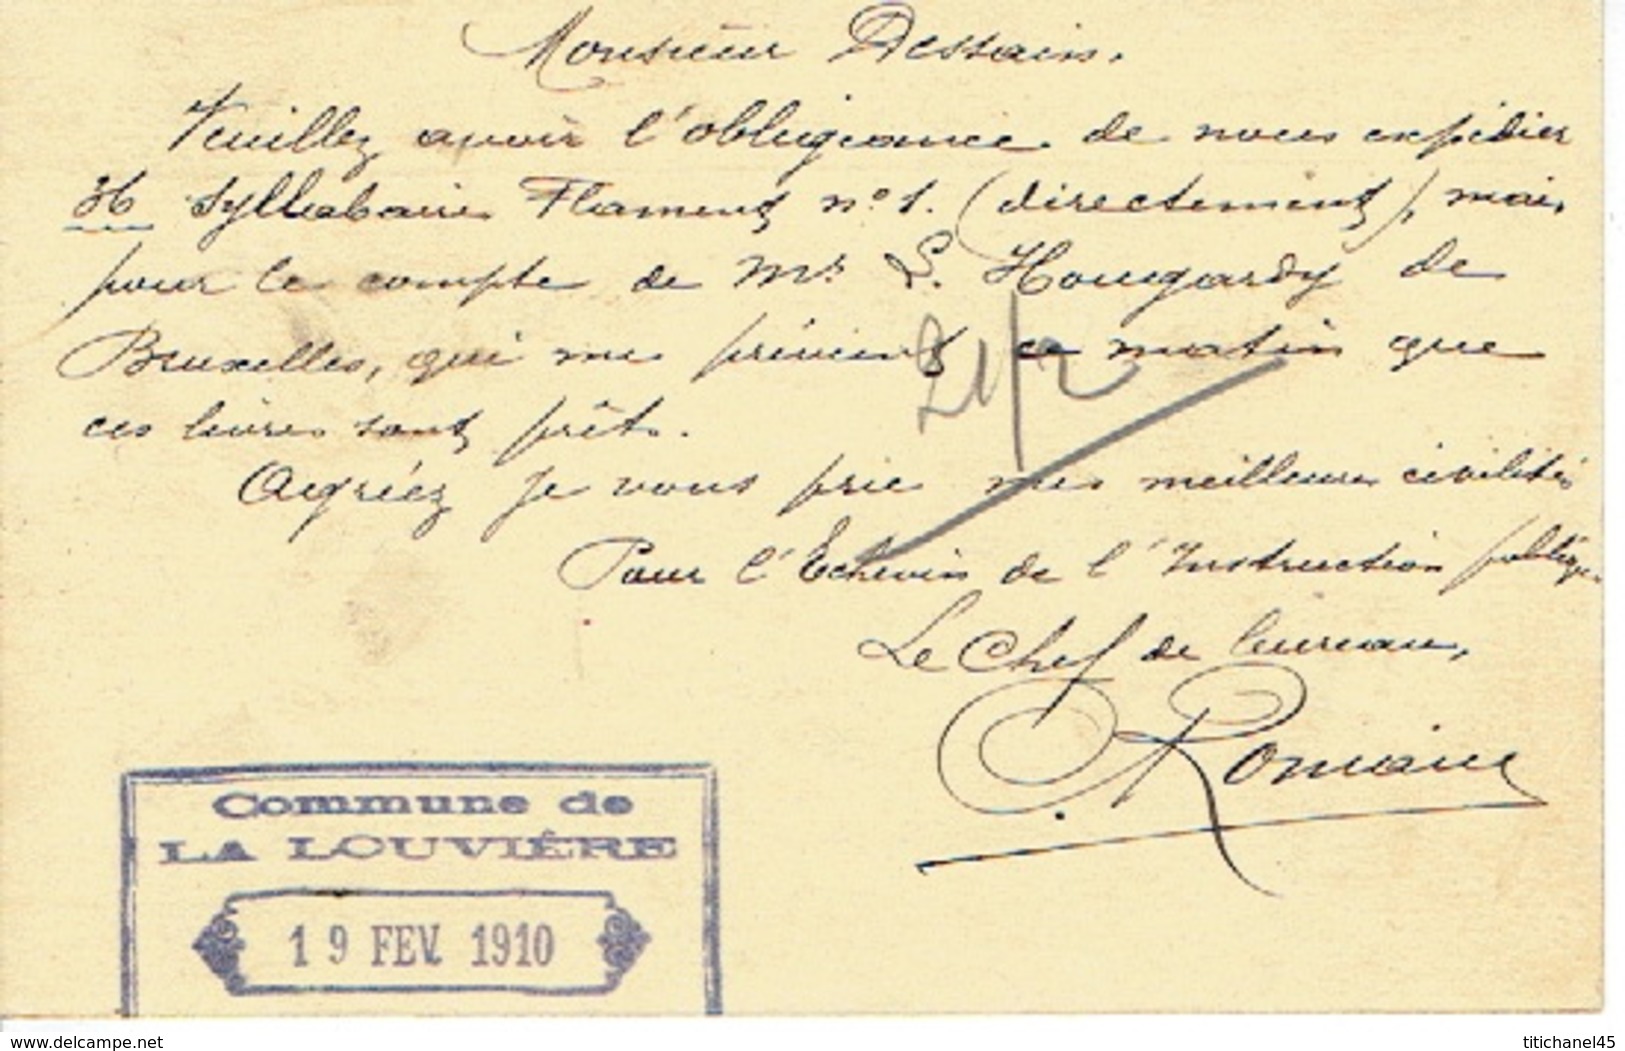 Monsieur Dessain.
Veuillez avoir l'obligeance de nous expédier
Syllabaires Flament n° 1. (directement), mais
pour le compte de Mr L. Hougardy de
Bruxelles, qui me prévient ce matin que
ces livres sont prêts.
21/2
Agréez je vous prie mes meilleures civilités
Pour l'Echevin de l'Instruction publique
Le Chef de bureau,
Romain
Commune de
LA LOUVIÈRE
19 FEV. 1910
www.delcampe.net
titichanel45